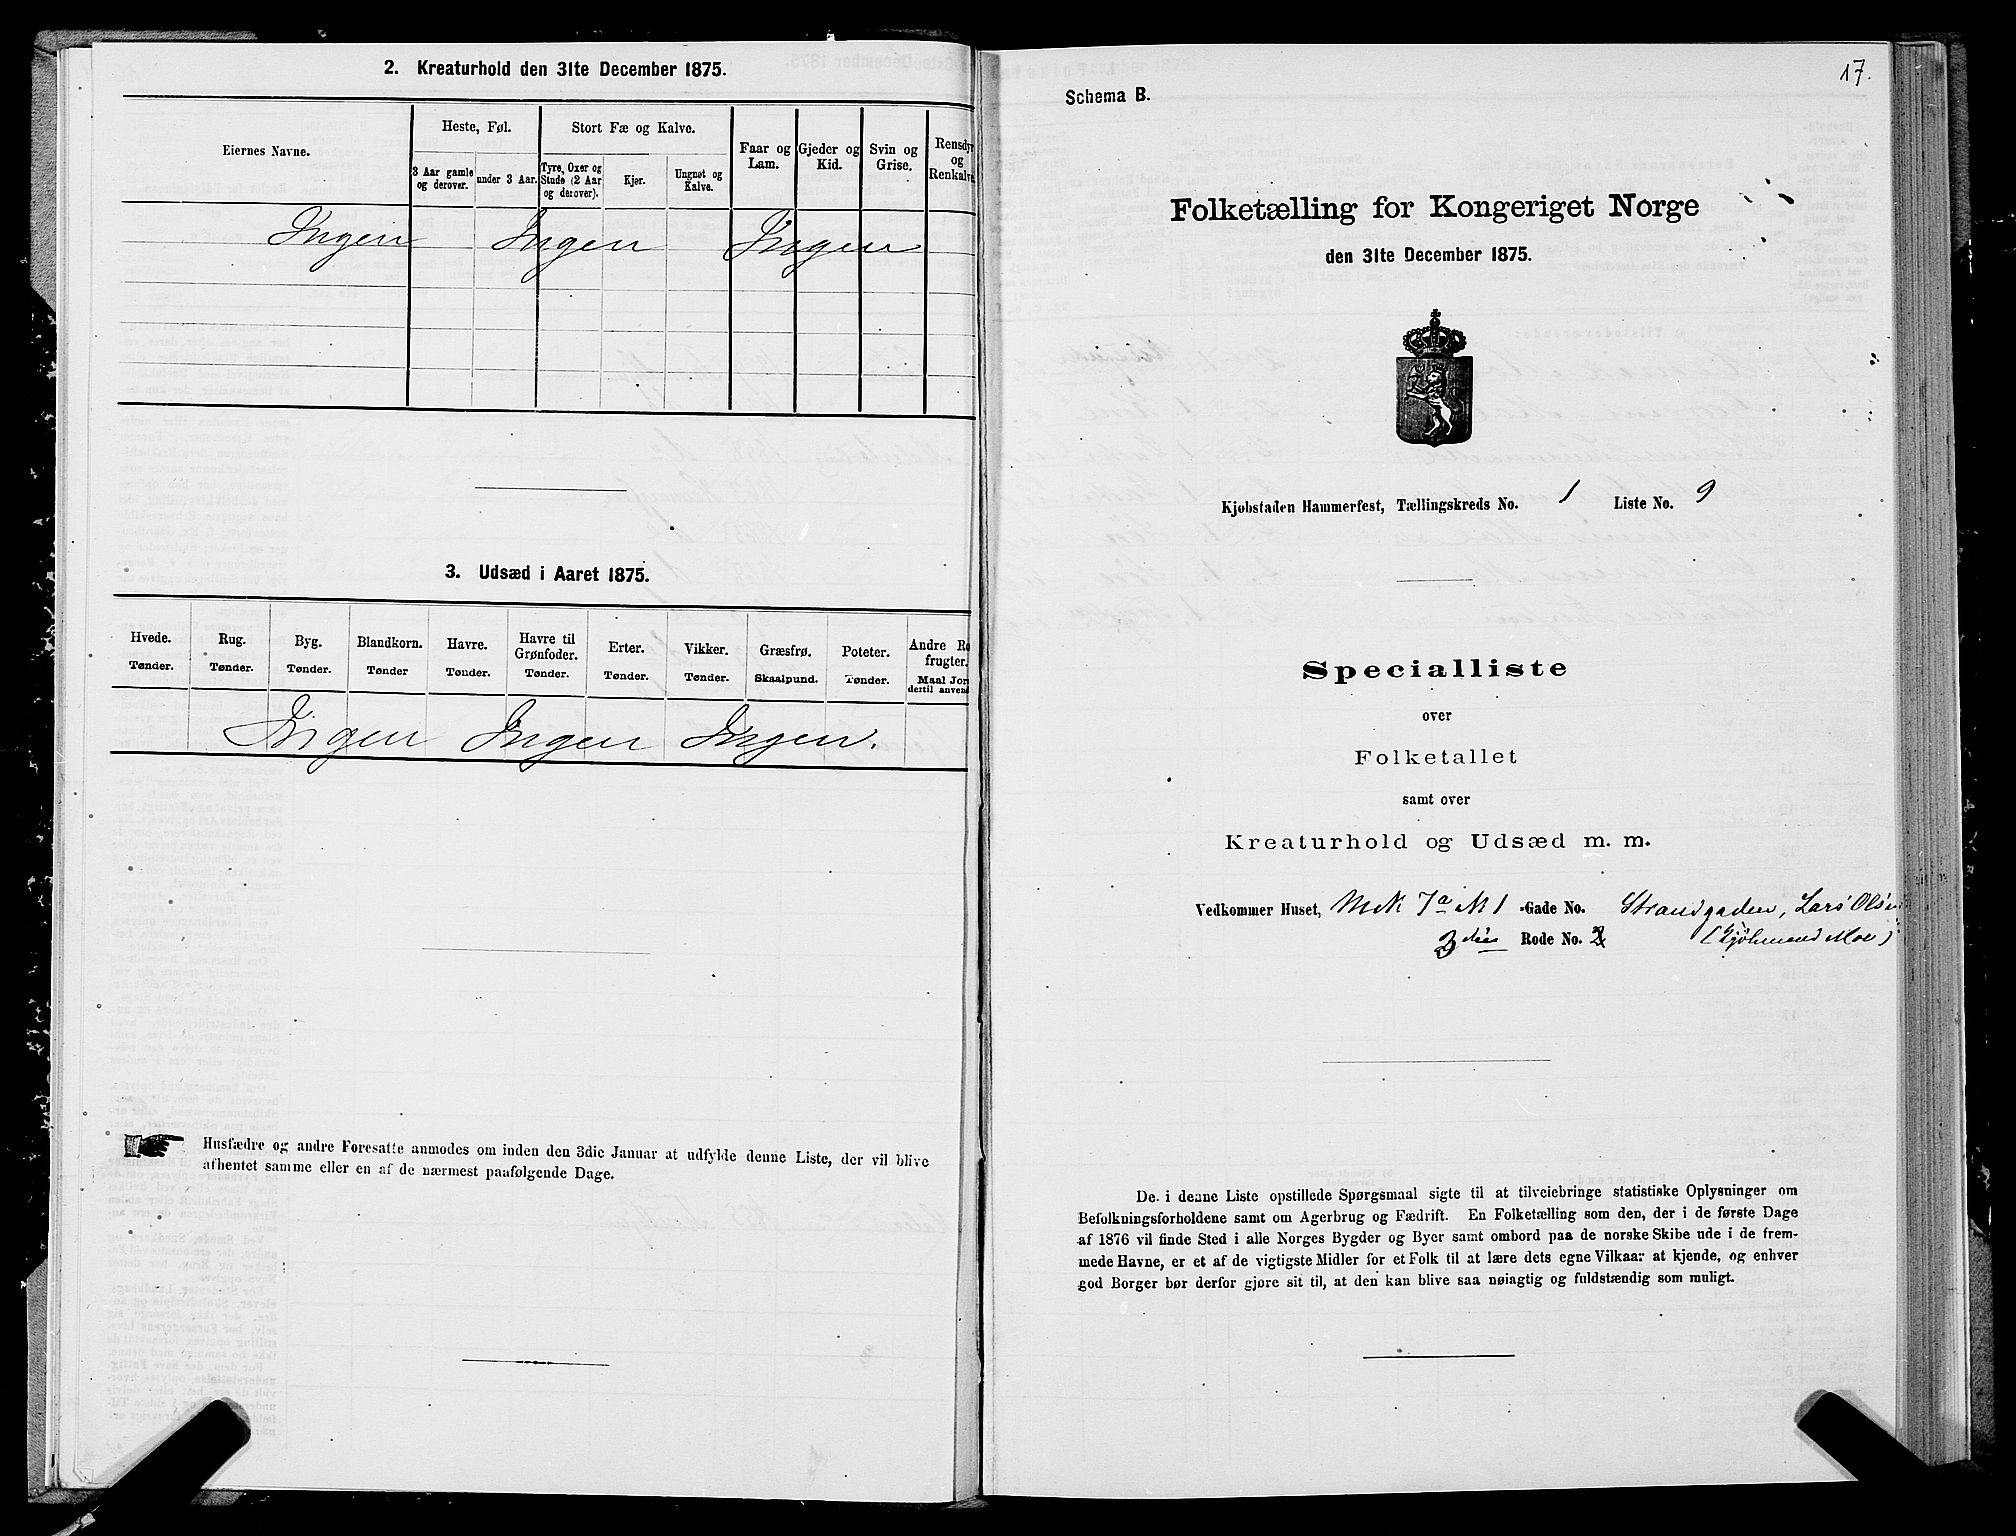 2. Kreaturhold den 31te December 1875.
Eiernes Navne.
Heste, Føl.
Stort Fæ og Kalve.
3 Aar gamle og derover.
under 3 Aar.
Tyre, Oxer og Stude (2 Aar og derover).
Kjør.
Ungnøt og Kalve.
Faar og Lam.
Gjeder og Kid.
Svin og Grise.
Rensdyr og Renkalve
Ingen Ingen Ingen
3. Udsæd i Aaret 1875.
Hvede. Rug. Byg. Blandkorn. Havre. Havre til Grønfoder. Erter. Vikker. Græsfrø. Poteter. Andre Ro frugter.
Tønder. Tønder. Tønder. Tønder Tønder. Tønder. Tønder. Tønder. Skaalpund. Tønder. Maal Jor dertil anvend
Ingen Ingen Ingen.
Husfædre og andre Foresatte anmodes om inden den 3die Januar at udfylde denne Liste, der vil blive
afhentet samme eller en af de nærmest paafølgende Dage.
17.
Schema B.
Folketælling for Kongeriget Norge
den 31te December 1875.
Kjøbstaden Hammerfest, Tællingskreds No. 1 Liste No. 9
Specialliste
over
Folketallet
samt over
Kreaturhold og Udsæd m. m.
Vedkommer Huset, 7a 1 -Gade No. Strandgaden, Lars Olsen
3die Rode No. 2 Moe)
De i denne Liste opstillede Spørgsmaal sigte til at tilveiebringe statistiske Oplysninger om
Befolkningsforholdene samt om Agerbrug og Fædrift. En Folketælling som den, der i de første Dage
af 1876 vil finde Sted i alle Norges Bygder og Byer samt ombord paa de norske Skibe ude i de frem-
mede Havne, er et af de vigtigste Midler for et Folk til at lære dets egne Vilkaar at kjende, og enhver
god Borger bør derfor gjøre sit til, at den kan blive saa nøiagtig og fuldstændig som muligt.